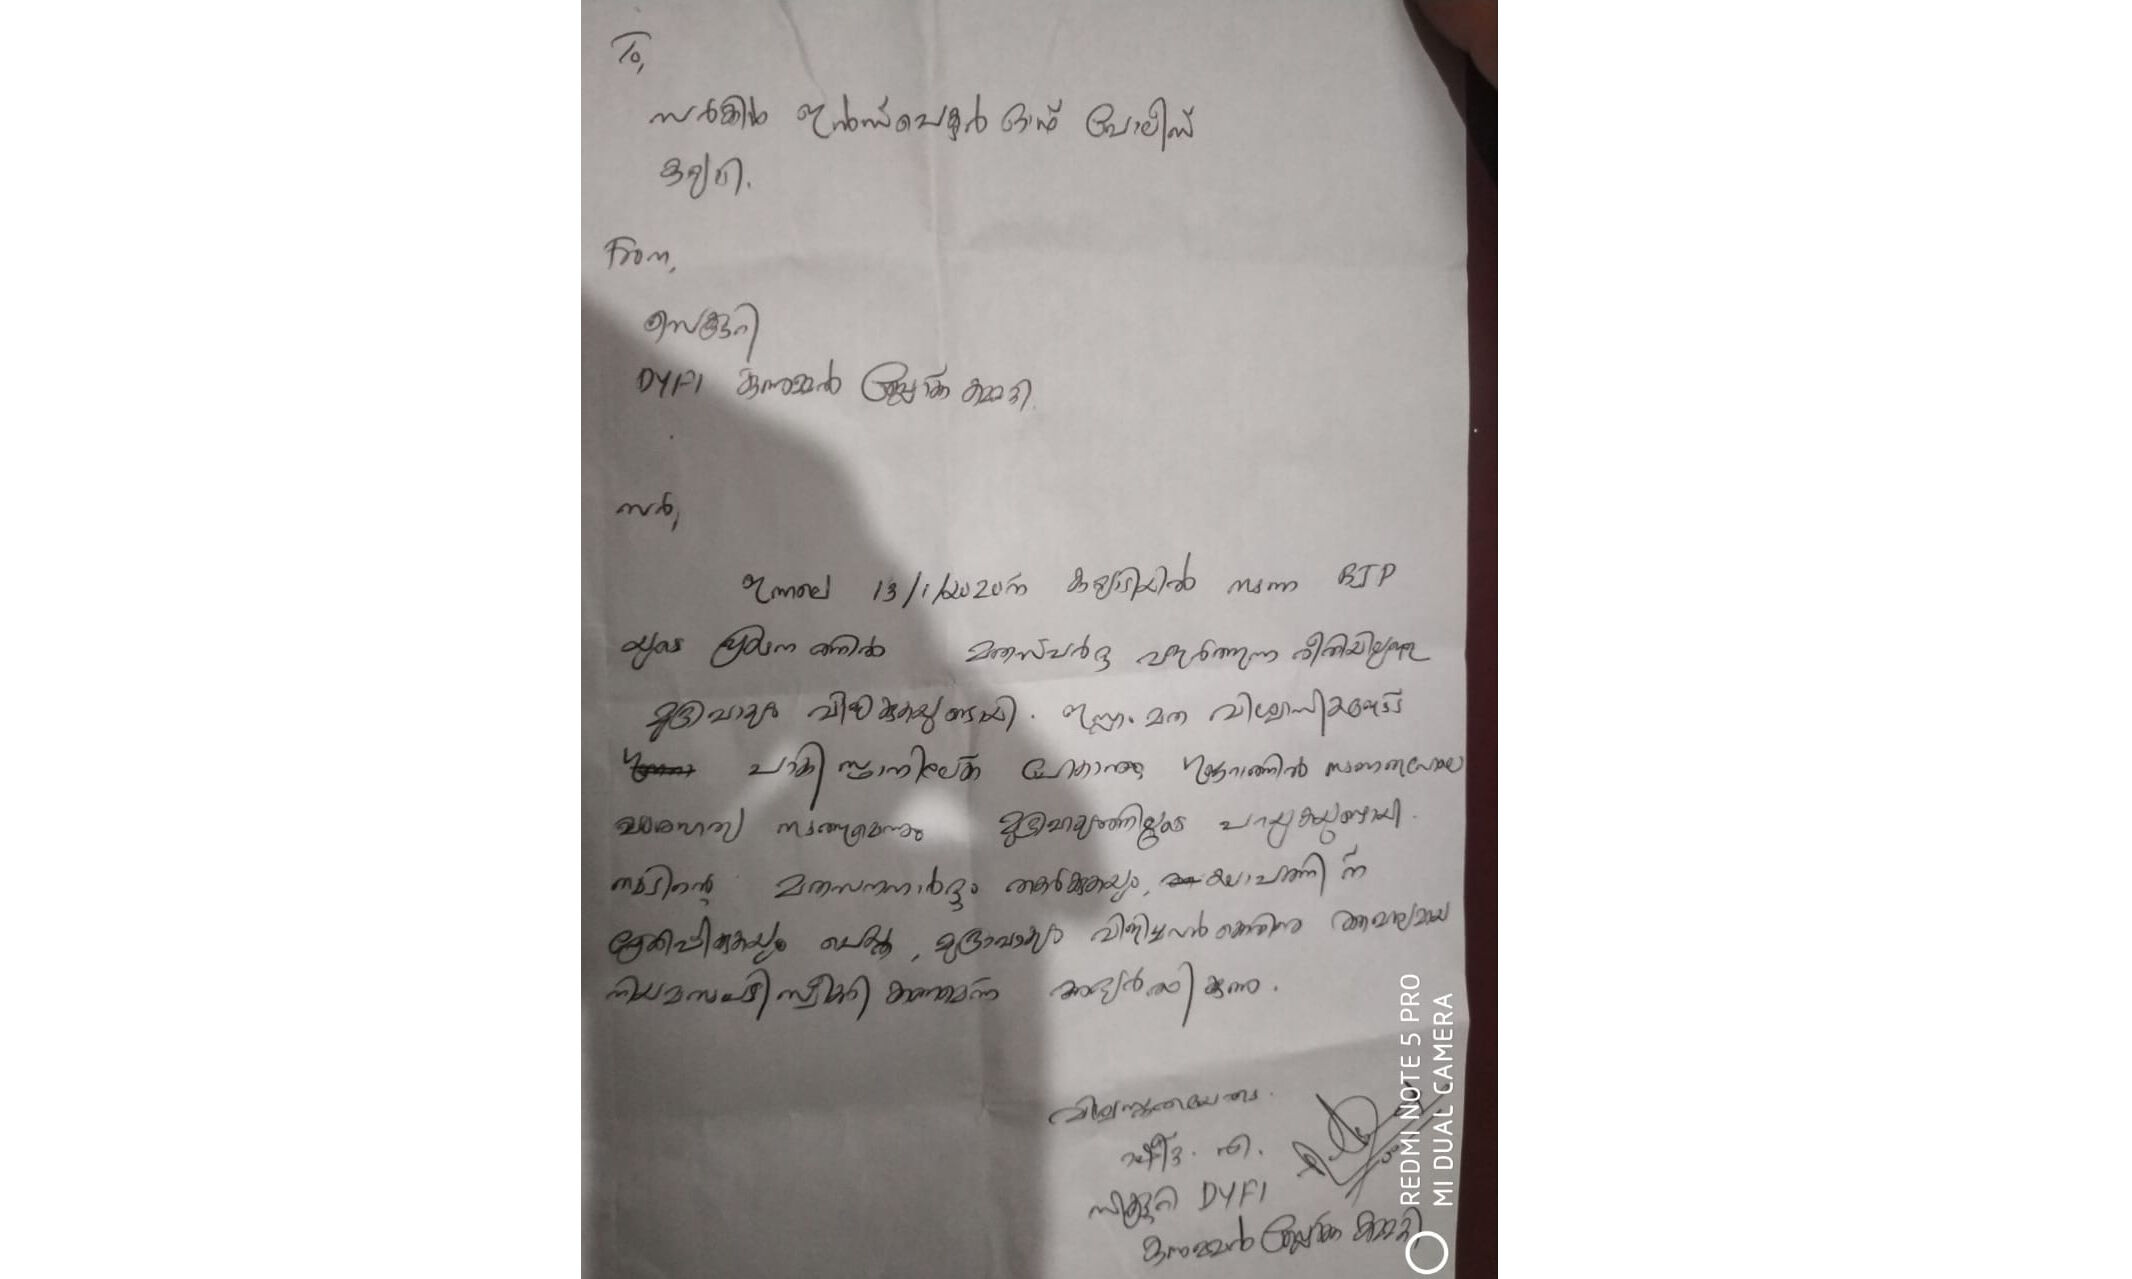 To,
സർക്കിൾ ഇൻസ്പെക്ടർ ഓഫ് പോലീസ്
കുറ്റ്യാടി.
From,
സെക്രട്ടറി
DYFI കുന്നുമ്മൽ ബ്ലോക്ക് കമ്മറ്റി.
സർ,
ഇന്നലെ 13/1/2020ന് കുറ്റ്യാടിയിൽ നടന്ന BJP
യുടെ പ്രകടനത്തിൽ മതസ്പർദ്ദ വളർത്തുന്ന രീതിയിലുള്ള
മുദ്രാവാക്യം വിളിക്കുകയുണ്ടായി. ഇസ്ലാം മത വിശ്വാസികളോട്
പാകിസ്ഥാനിലേക്ക് പോകാനും ഗുജറാത്തിൽ നടന്നതുപോലെ
നടത്തുമെന്നും മുദ്രാവാക്യത്തിലൂടെ പറയുകയുണ്ടായി.
നാടിന്റെ മതസൗഹാർദ്ദം തകർക്കുകയും, കലാപത്തിന്
പ്രേരിപ്പിക്കുകയും ചെയ്ത, മുദ്രാവാക്യം വിളിച്ചവർക്കെതിരെ ആവശ്യമായ
നിയമനടപടി സ്വീകരിക്കണമെന്ന് അഭ്യർത്ഥിക്കുന്നു.
വിശ്വസ്തതയോടെ.
സെക്രട്ടറി DYFI
കുന്നുമ്മൽ ബ്ലോക്ക് കമ്മറ്റി
REDMI NOTE 5 PRO
MI DUAL CAMERA